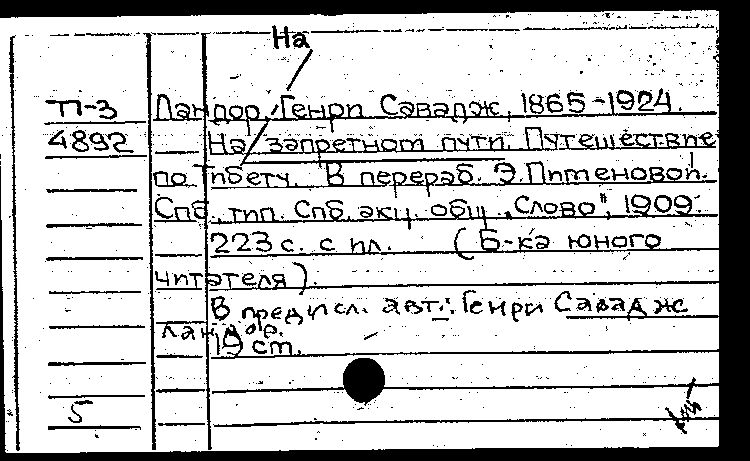 На
П-3 Ландор, Генри Савадж, 1865-1924.
4892 На запретном пути. Путешествие
по Тибету. В перераб. Э.Пименовой.
Спб., тип. Спб. акц. общ. „Слово", 1909.
223 с. с ил. (Б-ка юного
читателя).
В предисл. авт.: Генри Савадж
Ландор.
19 см.
5